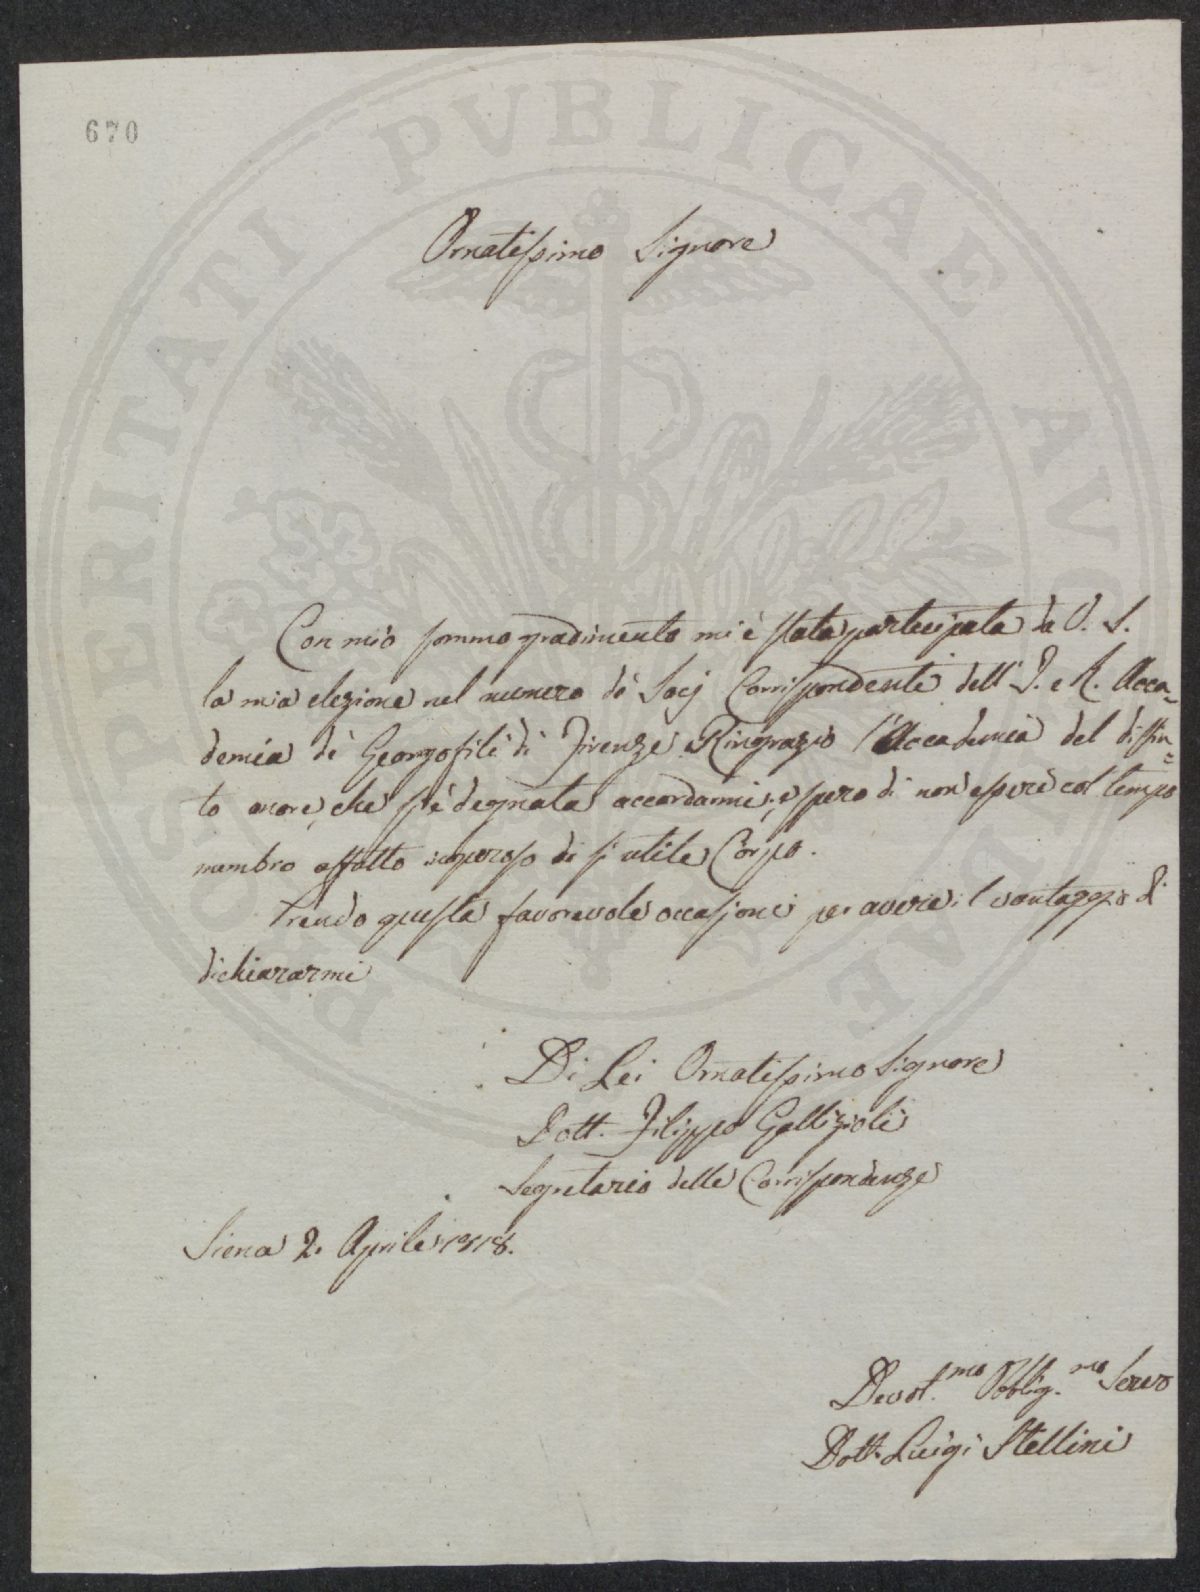 670
PROSPERITATI PVBLICAE AVGENDAE
Ornatissimo Signore
Con mio sommo gradimento mi è stata partecipata da V. S.
la mia elezione nel numero dè Socj Corrispondenti dell' I. e R. Acca=
demia dè Georgofili di Firenze. Ringrazio l'Accademia del distin=
to onore, che s'è degnata accordarmi; e spero di non essere col tempo
membro affatto inoperoso di sì utile Corpo.
Prendo questa favorevole occasione per avere il vantaggio di
dichiararmi
Di Lei Ornatissimo Signore
Dott. Filippo Gallizioli
Segretario delle Corrispondenze
Siena 2. Aprile 1818.
Devot.mo Obblig.mo Servo
Dott. Luigi Stellini